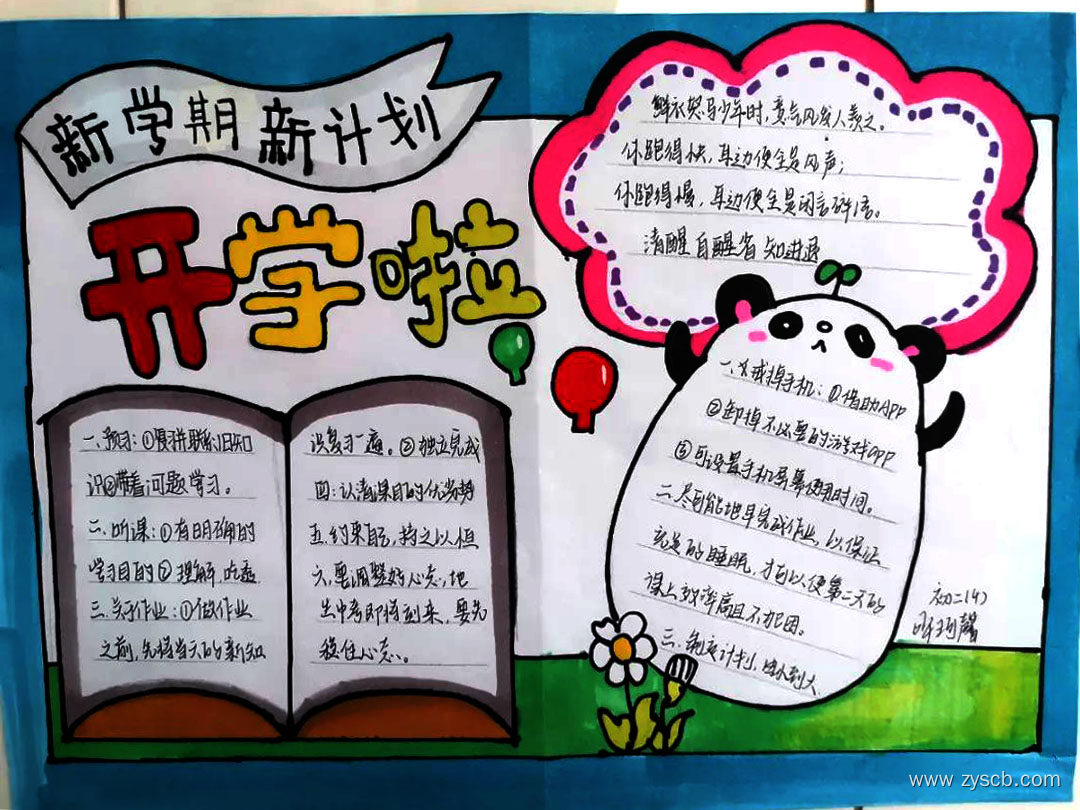 新学期新计划
开学啦
鲜衣怒马少年时,意气风发人羡之。
你跑得快,耳边便全是风声;
你跑得慢,耳边便全是闲言碎语。
清醒 自醒省 知进退
一.预习:①
旧知
识②带着问题学习。
二.听课:①有明确的
学习目的②理解,吃透
三.关于作业:①做作业
之前,先将当天的新知
识复习一遍。②独立完成
四:认清课目的优劣势
五.约束自己,持之以恒
六,要调整好心态,地
生中考即将到来,要先
稳住心态。
戒掉手机:①借助APP
②卸掉不必要的游戏app
③可设置手机屏幕使用时间。
二.尽可能地早完成作业,以保证
充足的睡眠,才可以使第二天的
课上效率高且不犯困。
三.制定计划,由小到大
初二(4)
www.zyscb.com